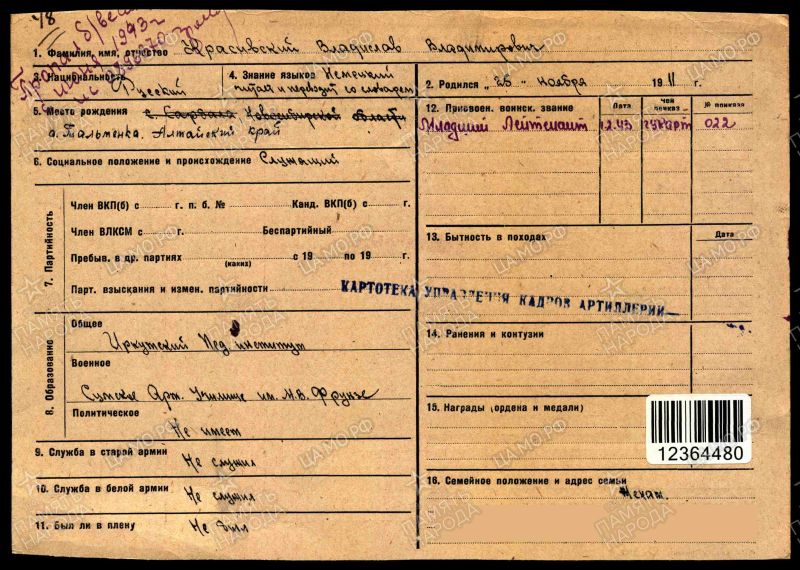 48
Пропал б/вести
1943г
1. Фамилия, имя, отчество Красивский Владислав Владимирович
3. Национальность Русский
4. Знание языков Немецкий
читает и переводит со словарем
2. Родился „25" ноября 1911 г.
5. Место рождения Новосибирской области
Тальменка. Алтайский край
12. Присвоен. воинск. звание Дата Чей приказ № приказа
Младший Лейтенант 12.43 022
6. Социальное положение и происхождение Служащий
7. Партийность
Член ВКП(б) с г. п. б. № Канд. ВКП(б) с г.
Член ВЛКСМ с г. Беспартийный
Пребыв. в др. партиях (каких) с 19 по 19 г.
Парт. взыскания и измен. партийности
13. Бытность в походах Дата
КАРТОТЕКА УПРАВЛЕНИЯ КАДРОВ АРТИЛЛЕРИИ
8. Образование
Общее
Иркутский Пед. институт
Военное
Сумское Арт. Училище им. М.В. Фрунзе
Политическое
Не имеет
14. Ранения и контузии
15. Награды (ордена и медали)
12364480
9. Служба в старой армии Не служил
10. Служба в белой армии Не служил
11. Был ли в плену Не был
16. Семейное положение и адрес семьи
Женат.
ПАМЯТЬ НАРОДА
ЦАМО.РФ